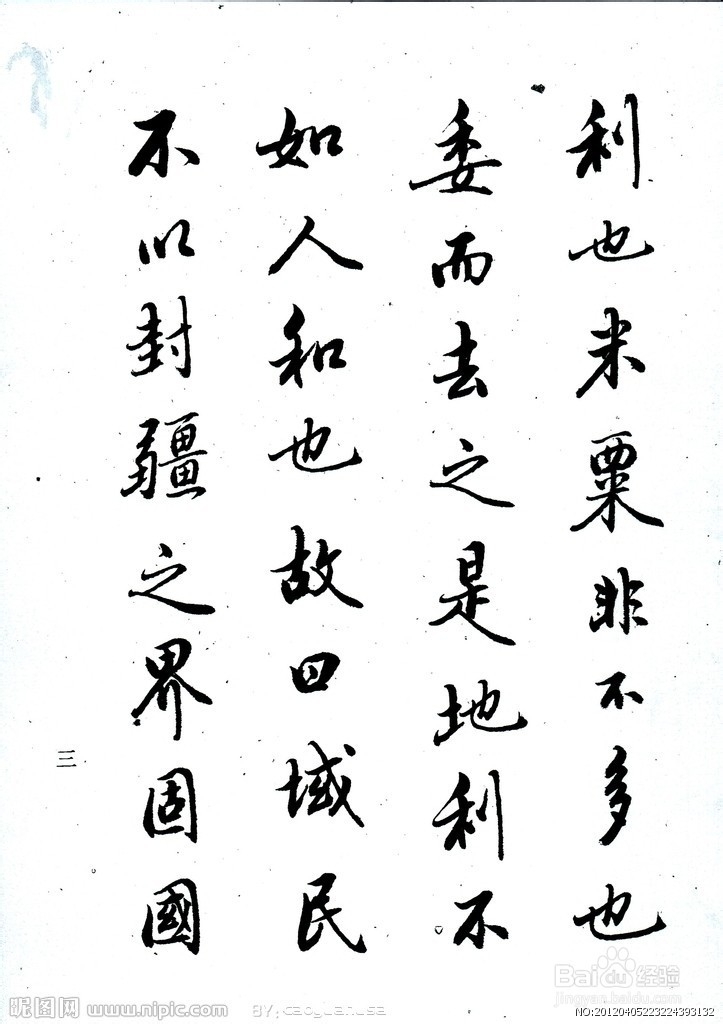 利也米粟非不多也
委而去之是地利不
如人和也故曰域民
不以封疆之界固國
三
昵图网 www.nipic.com
BY:caoguanlsa
Baidu经验
jingyan.baidu.com
NO:20120405223224393132